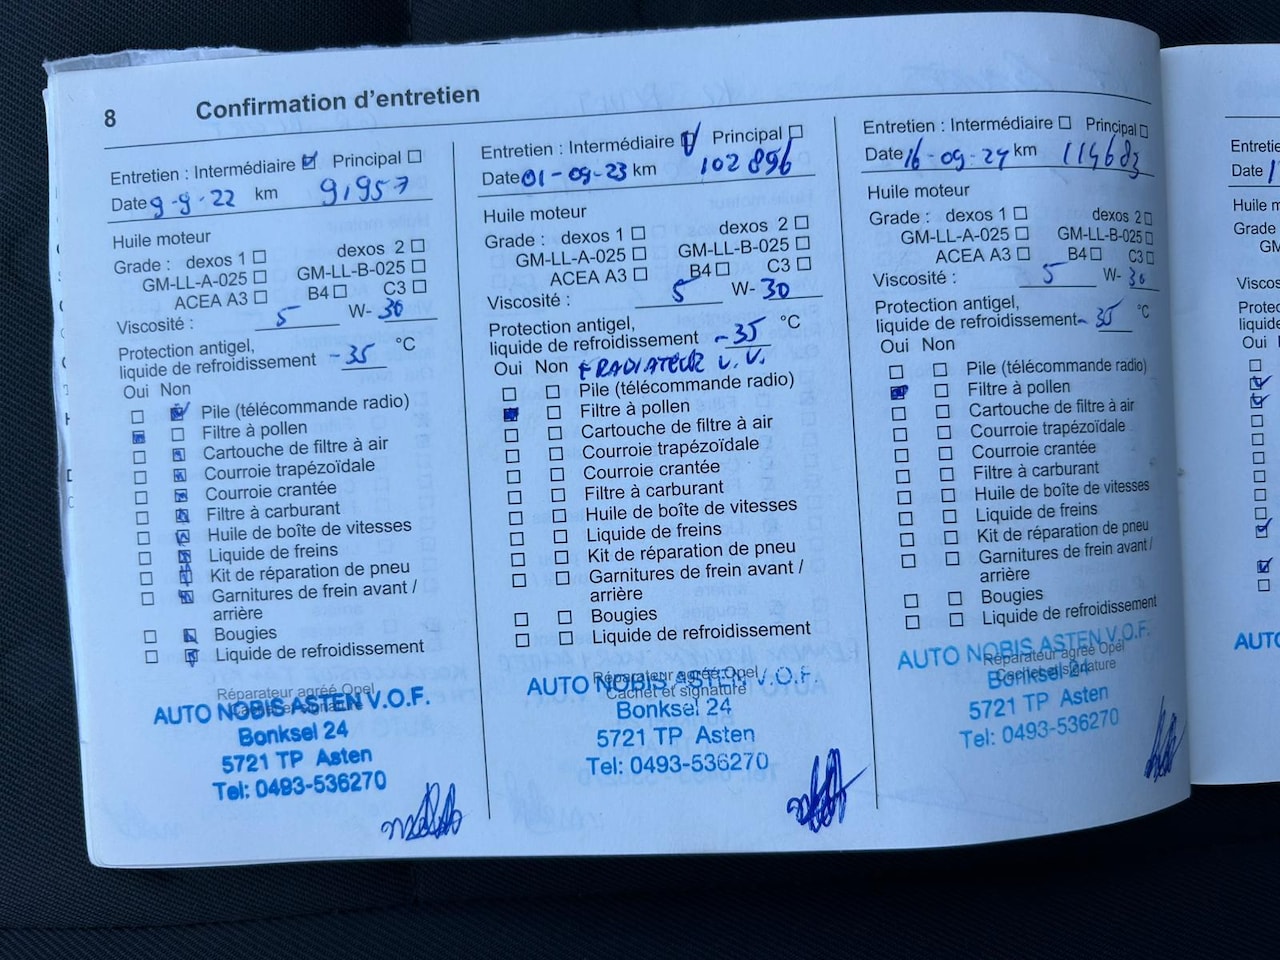 8 Confirmation d'entretien
Entretien : Intermédiaire Principal
Date 9-9-22 km 91957
Huile moteur
Grade : dexos 1 dexos 2
GM-LL-A-025 GM-LL-B-025
ACEA A3 B4 C3
Viscosité : 5 W- 30
Protection antigel,
liquide de refroidissement -35 °C
Oui Non
Pile (télécommande radio)
Filtre à pollen
Cartouche de filtre à air
Courroie trapézoïdale
Courroie crantée
Filtre à carburant
Huile de boîte de vitesses
Liquide de freins
Kit de réparation de pneu
Garnitures de frein avant /
arrière
Bougies
Liquide de refroidissement
Réparateur agréé Opel
Cachet et signature
AUTO NOBIS ASTEN V.O.F.
Bonksel 24
5721 TP Asten
Tel: 0493-536270
Entretien : Intermédiaire Principal
Date 01-09-23 km 102896
Huile moteur
Grade : dexos 1 dexos 2
GM-LL-A-025 GM-LL-B-025
ACEA A3 B4 C3
Viscosité : 5 W- 30
Protection antigel,
liquide de refroidissement -35 °C
Oui Non + RADIATEUR V.V.
Pile (télécommande radio)
Filtre à pollen
Cartouche de filtre à air
Courroie trapézoïdale
Courroie crantée
Filtre à carburant
Huile de boîte de vitesses
Liquide de freins
Kit de réparation de pneu
Garnitures de frein avant /
arrière
Bougies
Liquide de refroidissement
Réparateur agréé Opel
Cachet et signature
AUTO NOBIS ASTEN V.O.F.
Bonksel 24
5721 TP Asten
Tel: 0493-536270
Entretien : Intermédiaire Principal
Date 16-09-24 km 114683
Huile moteur
Grade : dexos 1 dexos 2
GM-LL-A-025 GM-LL-B-025
ACEA A3 B4 C3
Viscosité : 5 W- 30
Protection antigel,
liquide de refroidissement -35 °C
Oui Non
Pile (télécommande radio)
Filtre à pollen
Cartouche de filtre à air
Courroie trapézoïdale
Courroie crantée
Filtre à carburant
Huile de boîte de vitesses
Liquide de freins
Kit de réparation de pneu
Garnitures de frein avant /
arrière
Bougies
Liquide de refroidissement
Réparateur agréé Opel
Cachet et signature
AUTO NOBIS ASTEN V.O.F.
Bonksel 24
5721 TP Asten
Tel: 0493-536270
Date
Huile
Grade
Oui
AUTO